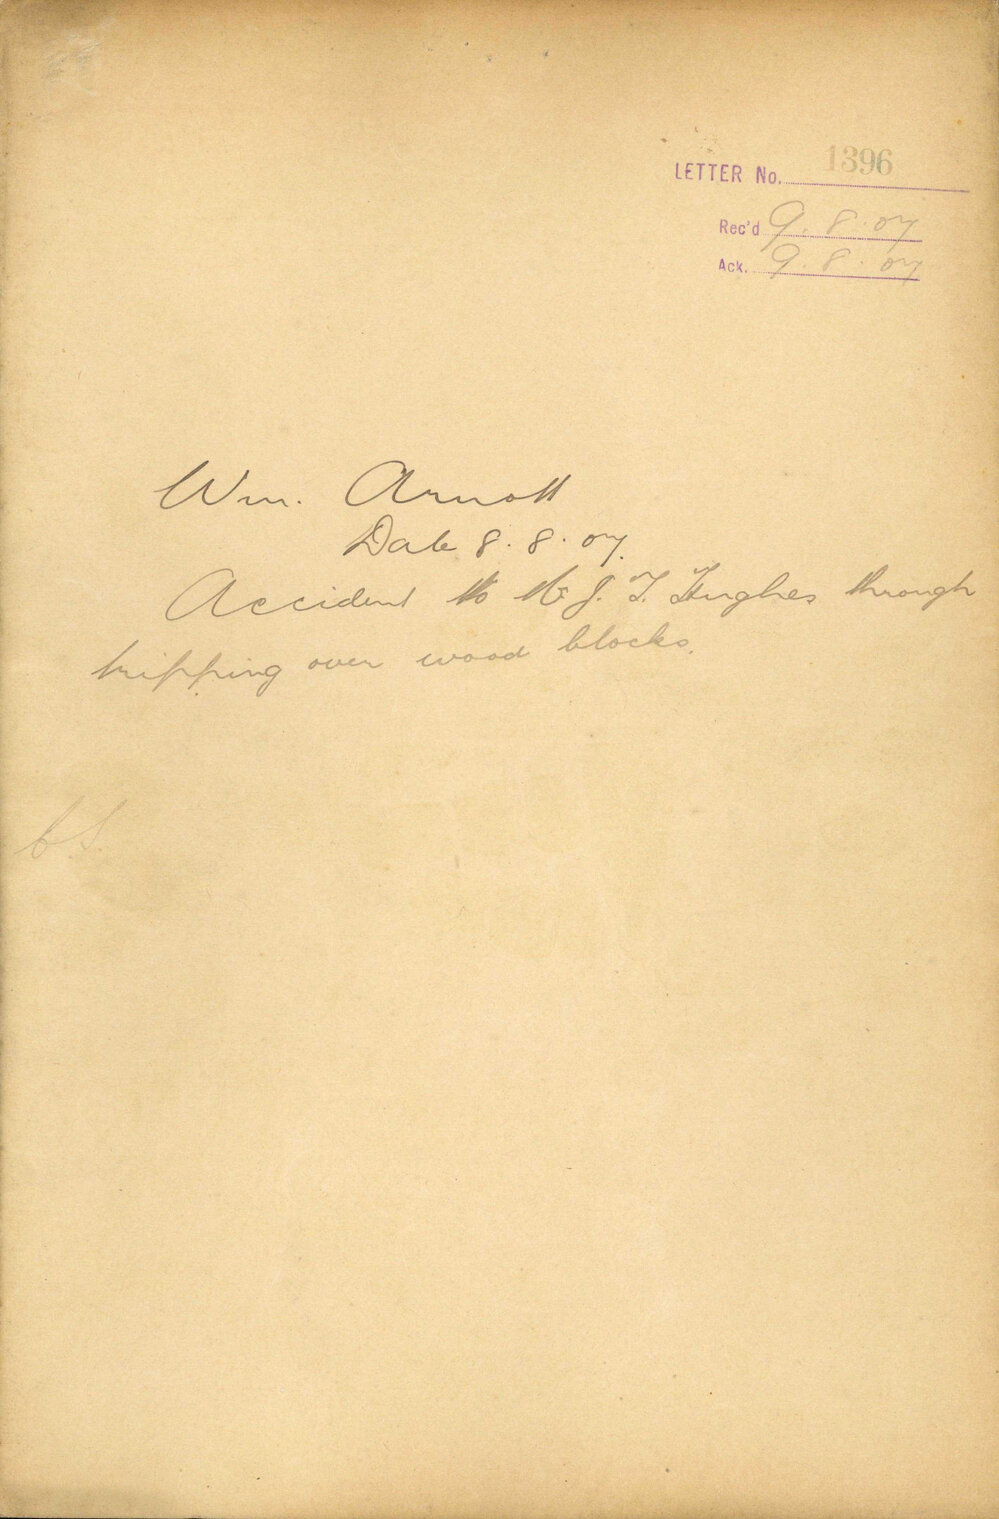 LETTER No. 1396
Rec'd 9.8.07
Ack. 9.8.07
Wm. Arnott
Date 8.8.07.
Accident to Mr J. T. Hughes through
tripping over wood blocks.